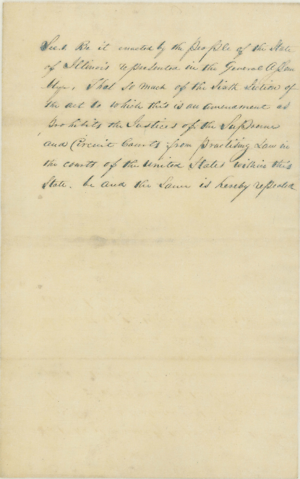 Sec 1 Be it enacted by the people of the State
of Illinois represented in the General Assem
bly, That so much of the Sixth Section of
the act to which this is an amendment as
prohibits the Justices of the Supreme
and Circuit Courts from practising Law in
the courts of the United States within this
State, be and the same is hereby repealed